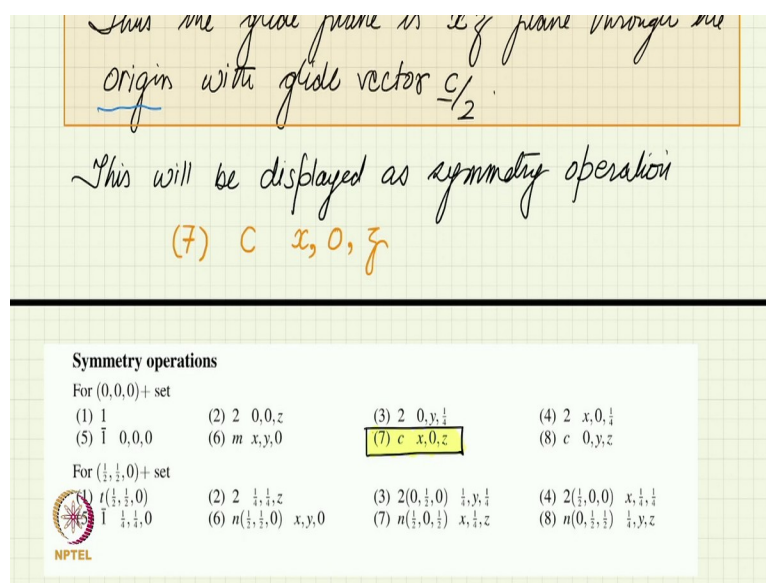 Thus the glide plane is xz plane through the
origin with glide vector c/2.
This will be displayed as symmetry operation
(7) C x, 0, z
Symmetry operations
For (0,0,0)+ set
(1) 1 (2) 2 0,0,z (3) 2 0,y,¼ (4) 2 x,0,¼
(5) 1̄ 0,0,0 (6) m x,y,0 (7) c x,0,z (8) c 0,y,z
For (½,½,0)+ set
(1) t(½,½,0) (2) 2 ¼,¼,z (3) 2(0,½,0) ¼,y,¼ (4) 2(½,0,0) x,¼,¼
(5) 1̄ ¼,¼,0 (6) n(½,½,0) x,y,0 (7) n(½,0,½) x,¼,z (8) n(0,½,½) ¼,y,z
NPTEL